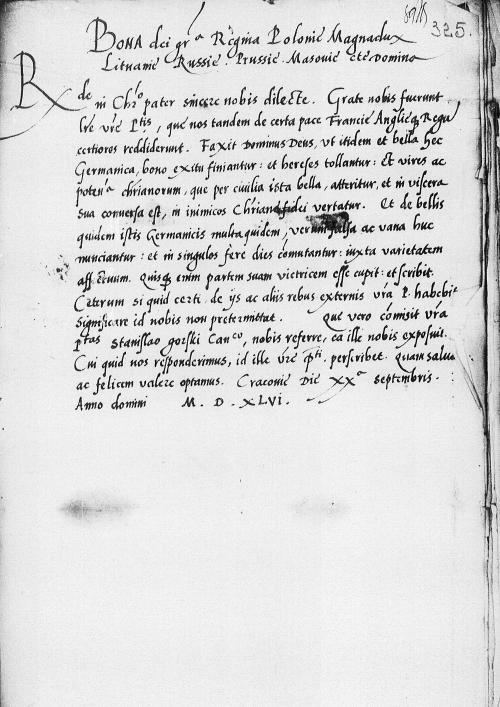 325.
BONA dei gr̃a Regina Polonie Magnadux
Lituanie Russie. Prussie. Masovie etc Domina
Rde in Chro pater sincere nobis dilecte. Grate nobis fuerunt
lre vre Ptis, que nos tandem de certa pace Francie Anglieq Regũ
certiores reddiderunt. Faxit Dominus Deus, ut itidem et bella hec
Germanica, bono exitu finiantur: et hereses tollantur: Et vires ac
potena christianorum, que per civilia ista bella, atteritur, et in viscera
sua conversa est, in inimicos Christiane fidei vertatur. Et de bellis
quidem istis Germanicis multa quidem, verum falsa ac vana huc
nunciantur: et in singulos fere dies comutantur: iuxta varietatem
affectuum. Quisq enim partem suam victricem esse cupit: et scribit.
Ceterum si quid certi de ijs ac aliis rebus externis vra P. habebit
significare id nobis non pretermittat. Que vero comisit vra
Ptas Stanislao gorski Canco, nobis referre, ea ille nobis exposuit.
Cui quid nos responderimus, id ille vre Pti. perscribet. Quam salvã
ac felicem valere optamus. Cracovie Die XXa Septembris.
Anno domini M. D. XLVI.